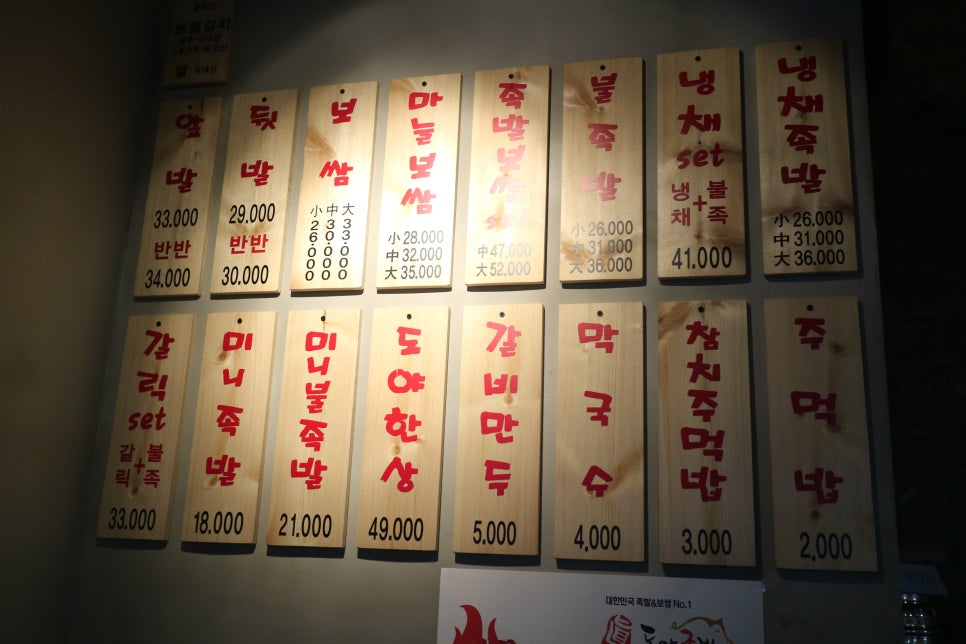 보쌈김치
쌀-국내산
앞발
33.000
반반
34.000
뒷발
29.000
반반
30.000
보쌈
小 26.000
中 30.000
大 33.000
마늘보쌈
小 28.000
中 32.000
大 35.000
족발보쌈set
中 47.000
大 52.000
불족발
小 26.000
中 31.000
大 36.000
냉채set
냉채+불족
41.000
냉채족발
小 26.000
中 31.000
大 36.000
갈릭set
갈릭+불족
33.000
미니족발
18.000
미니불족발
21.000
도야한상
49.000
갈비만두
5.000
막국수
4,000
참치주먹밥
3.000
주먹밥
2,000
대한민국 족발&보쌈 No.1